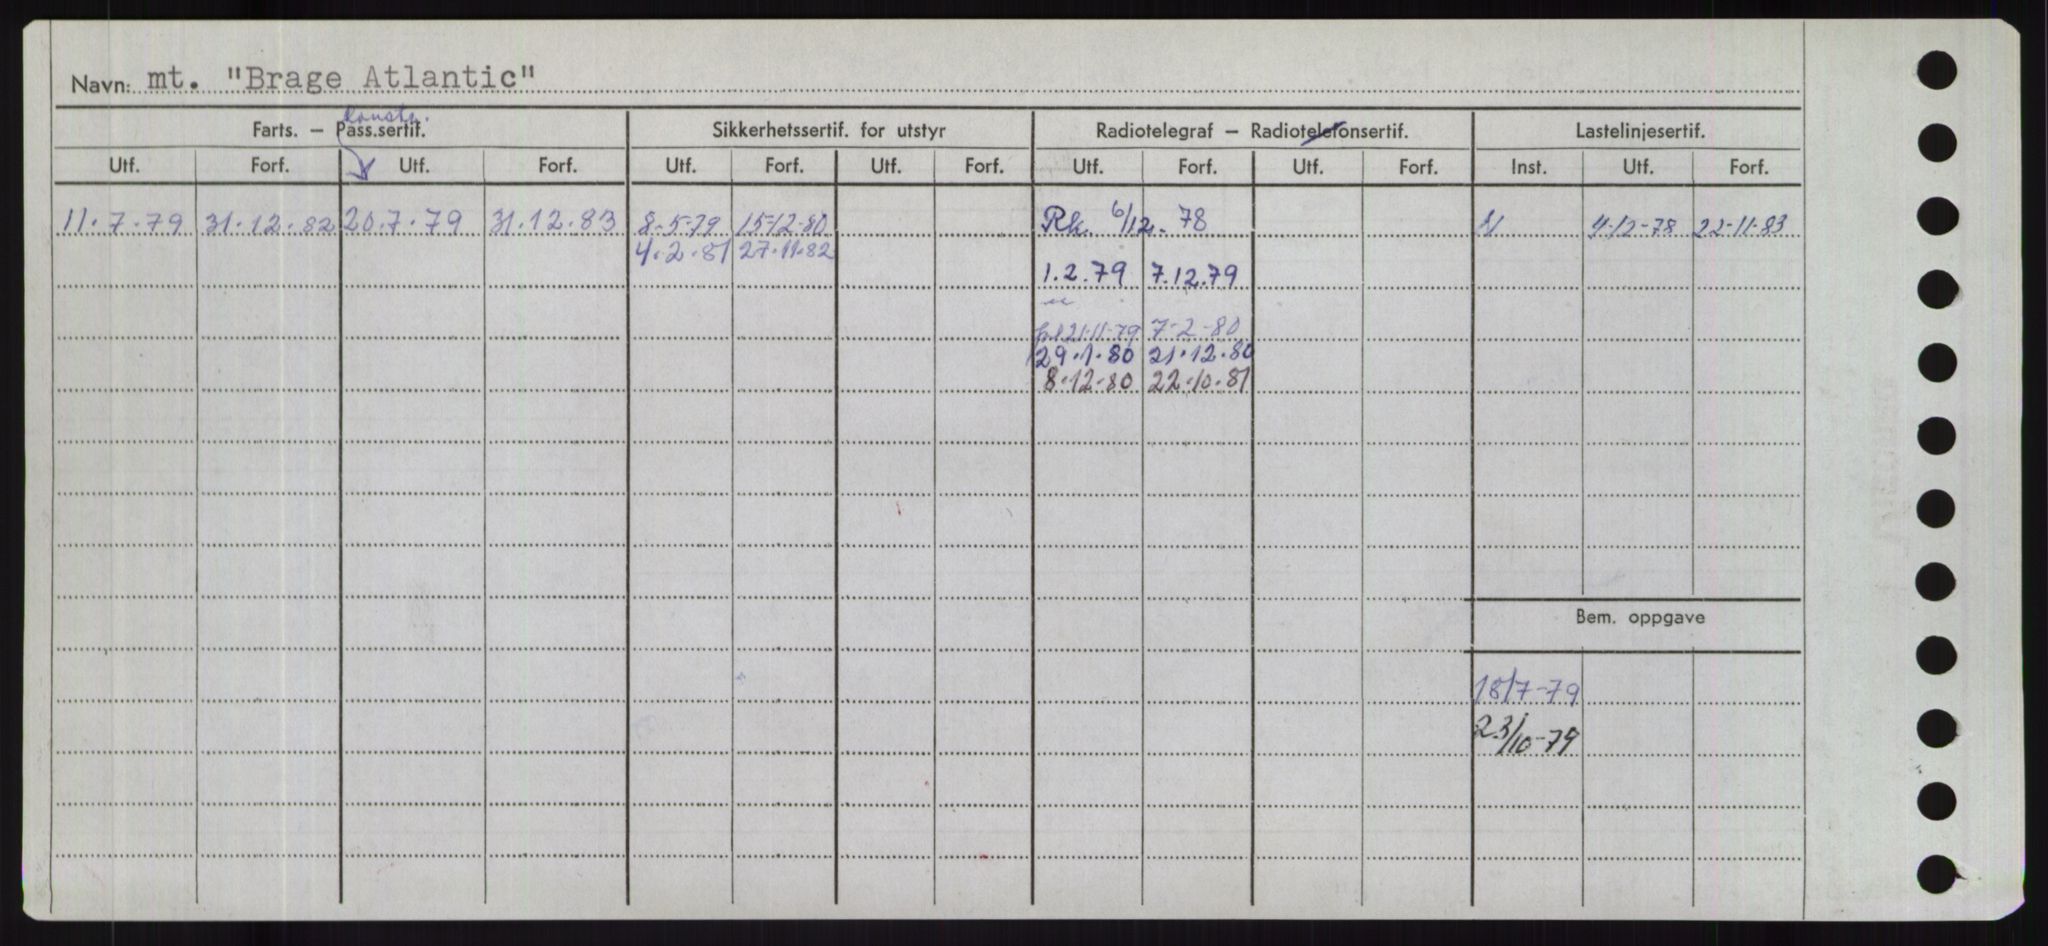 Navn: mt. "Brage Atlantic"
konstr.
Farts. — Pass.sertif. Sikkerhetssertif. for utstyr Radiotelegraf — Radiotelefonsertif. Lastelinjesertif.
Utf. Forf. Utf. Forf. Utf. Forf. Utf. Forf. Utf. Forf. Utf. Forf. Inst. Utf. Forf.
11.7.79 31.12.82 20.7.79 31.12.83 8-5-79 15-12-80 Rk. 6/12-78 4-12-78 22-11-83
4.2.81 27.11.82
1.2.79 7.12.79
21-11-79 7-2-80
29.1.80 21.12.80
8.12-80 22.10.81
Bem. oppgave
18/7-79
23/10-79